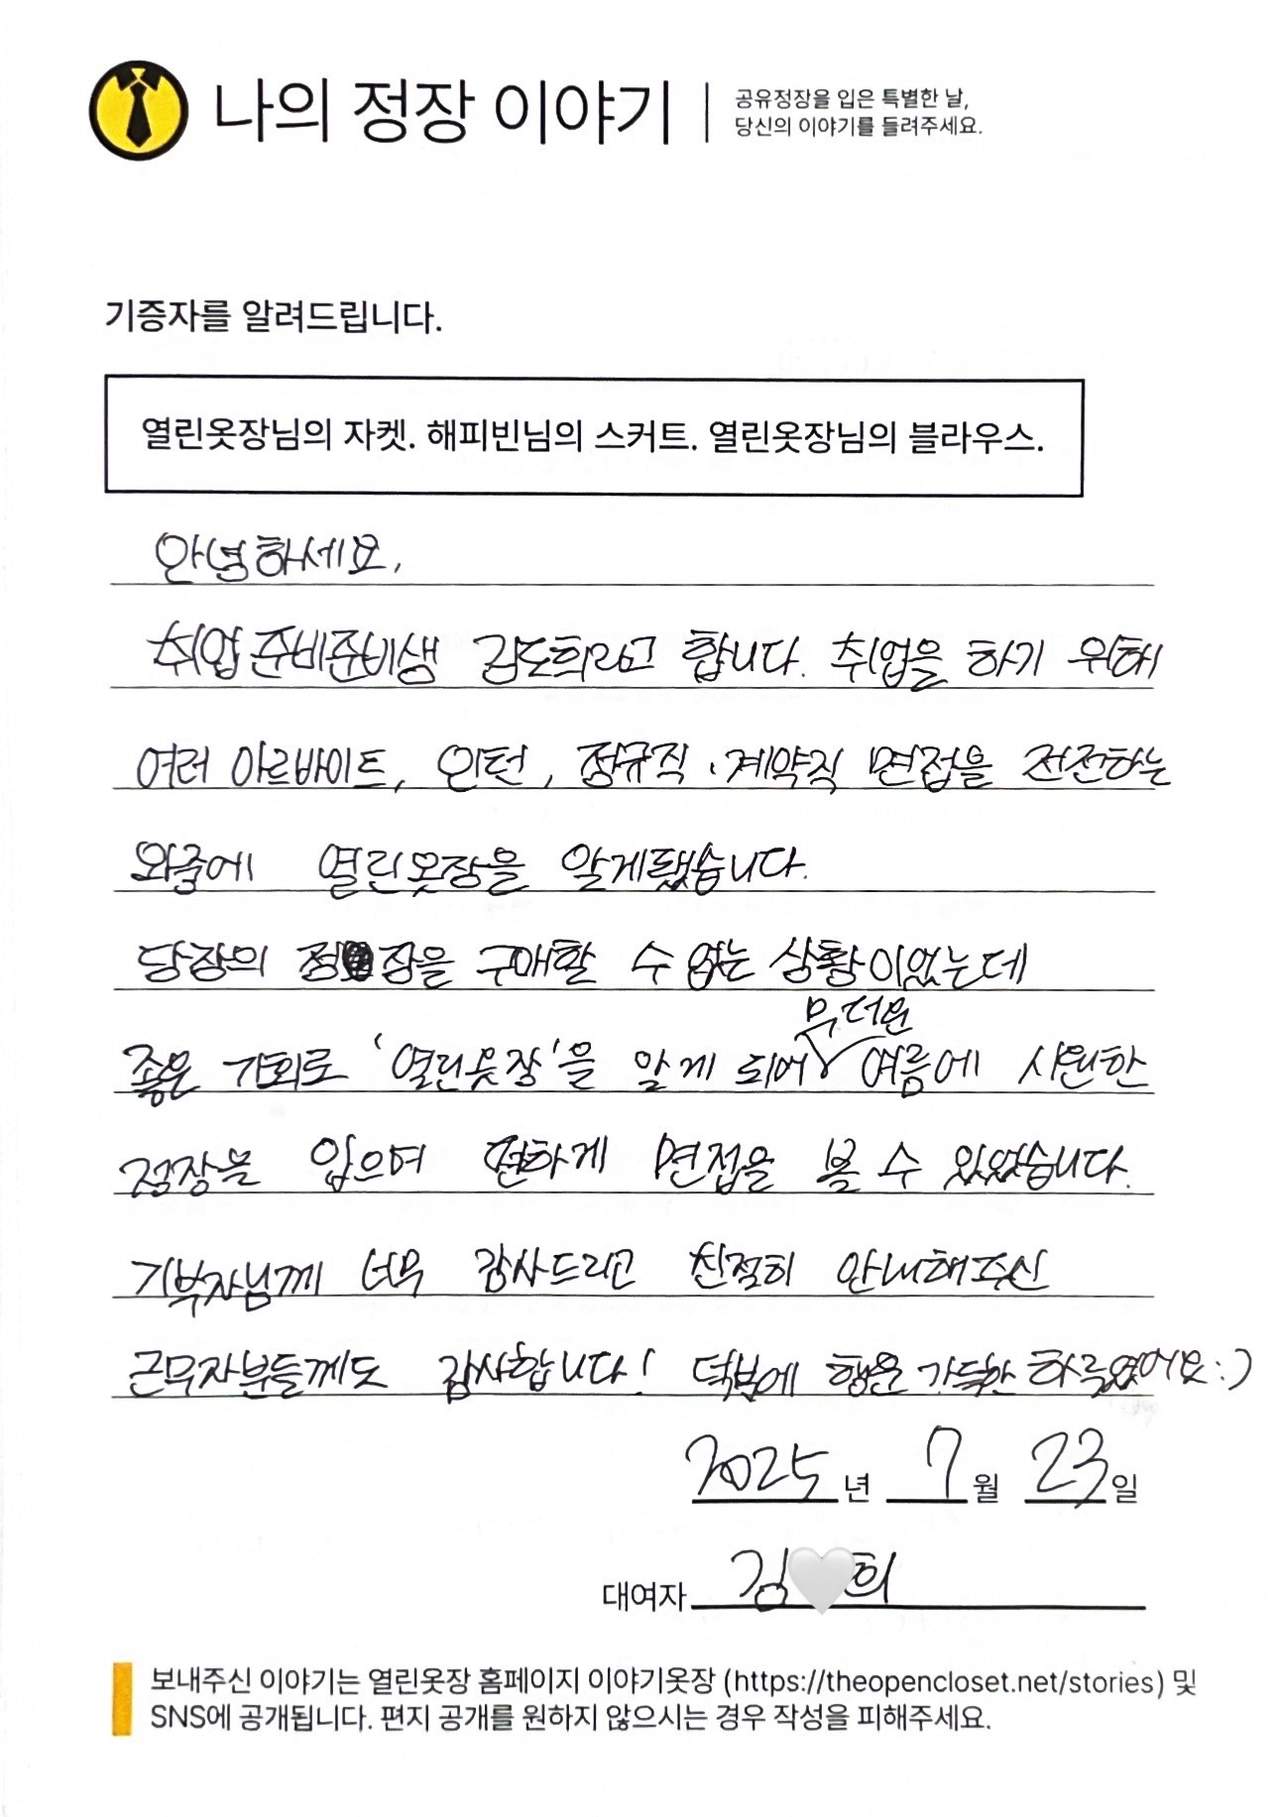 나의 정장 이야기
공유정장을 입은 특별한 날,
당신의 이야기를 들려주세요.
기증자를 알려드립니다.
열린옷장님의 자켓. 해피빈님의 스커트. 열린옷장님의 블라우스.
안녕하세요,
취업준비준비생 김도희라고 합니다. 취업을 하기 위해
여러 아르바이트, 인턴, 정규직·계약직 면접을 전전하는
와중에 열린옷장을 알게됐습니다.
당장의 정장을 구매할 수 없는 상황이었는데
무더운
좋은 기회로 '열린옷장'을 알게 되어 여름에 시원한
정장을 입으며 편하게 면접을 볼 수 있었습니다.
기부자님께 너무 감사드리고 친절히 안내해주신
근무자분들께도 감사합니다! 덕분에 행운 가득한 하루였어요:)
2025년 7월 23일
대여자 김🤍희
보내주신 이야기는 열린옷장 홈페이지 이야기옷장 (https://theopencloset.net/stories) 및
SNS에 공개됩니다. 편지 공개를 원하지 않으시는 경우 작성을 피해주세요.